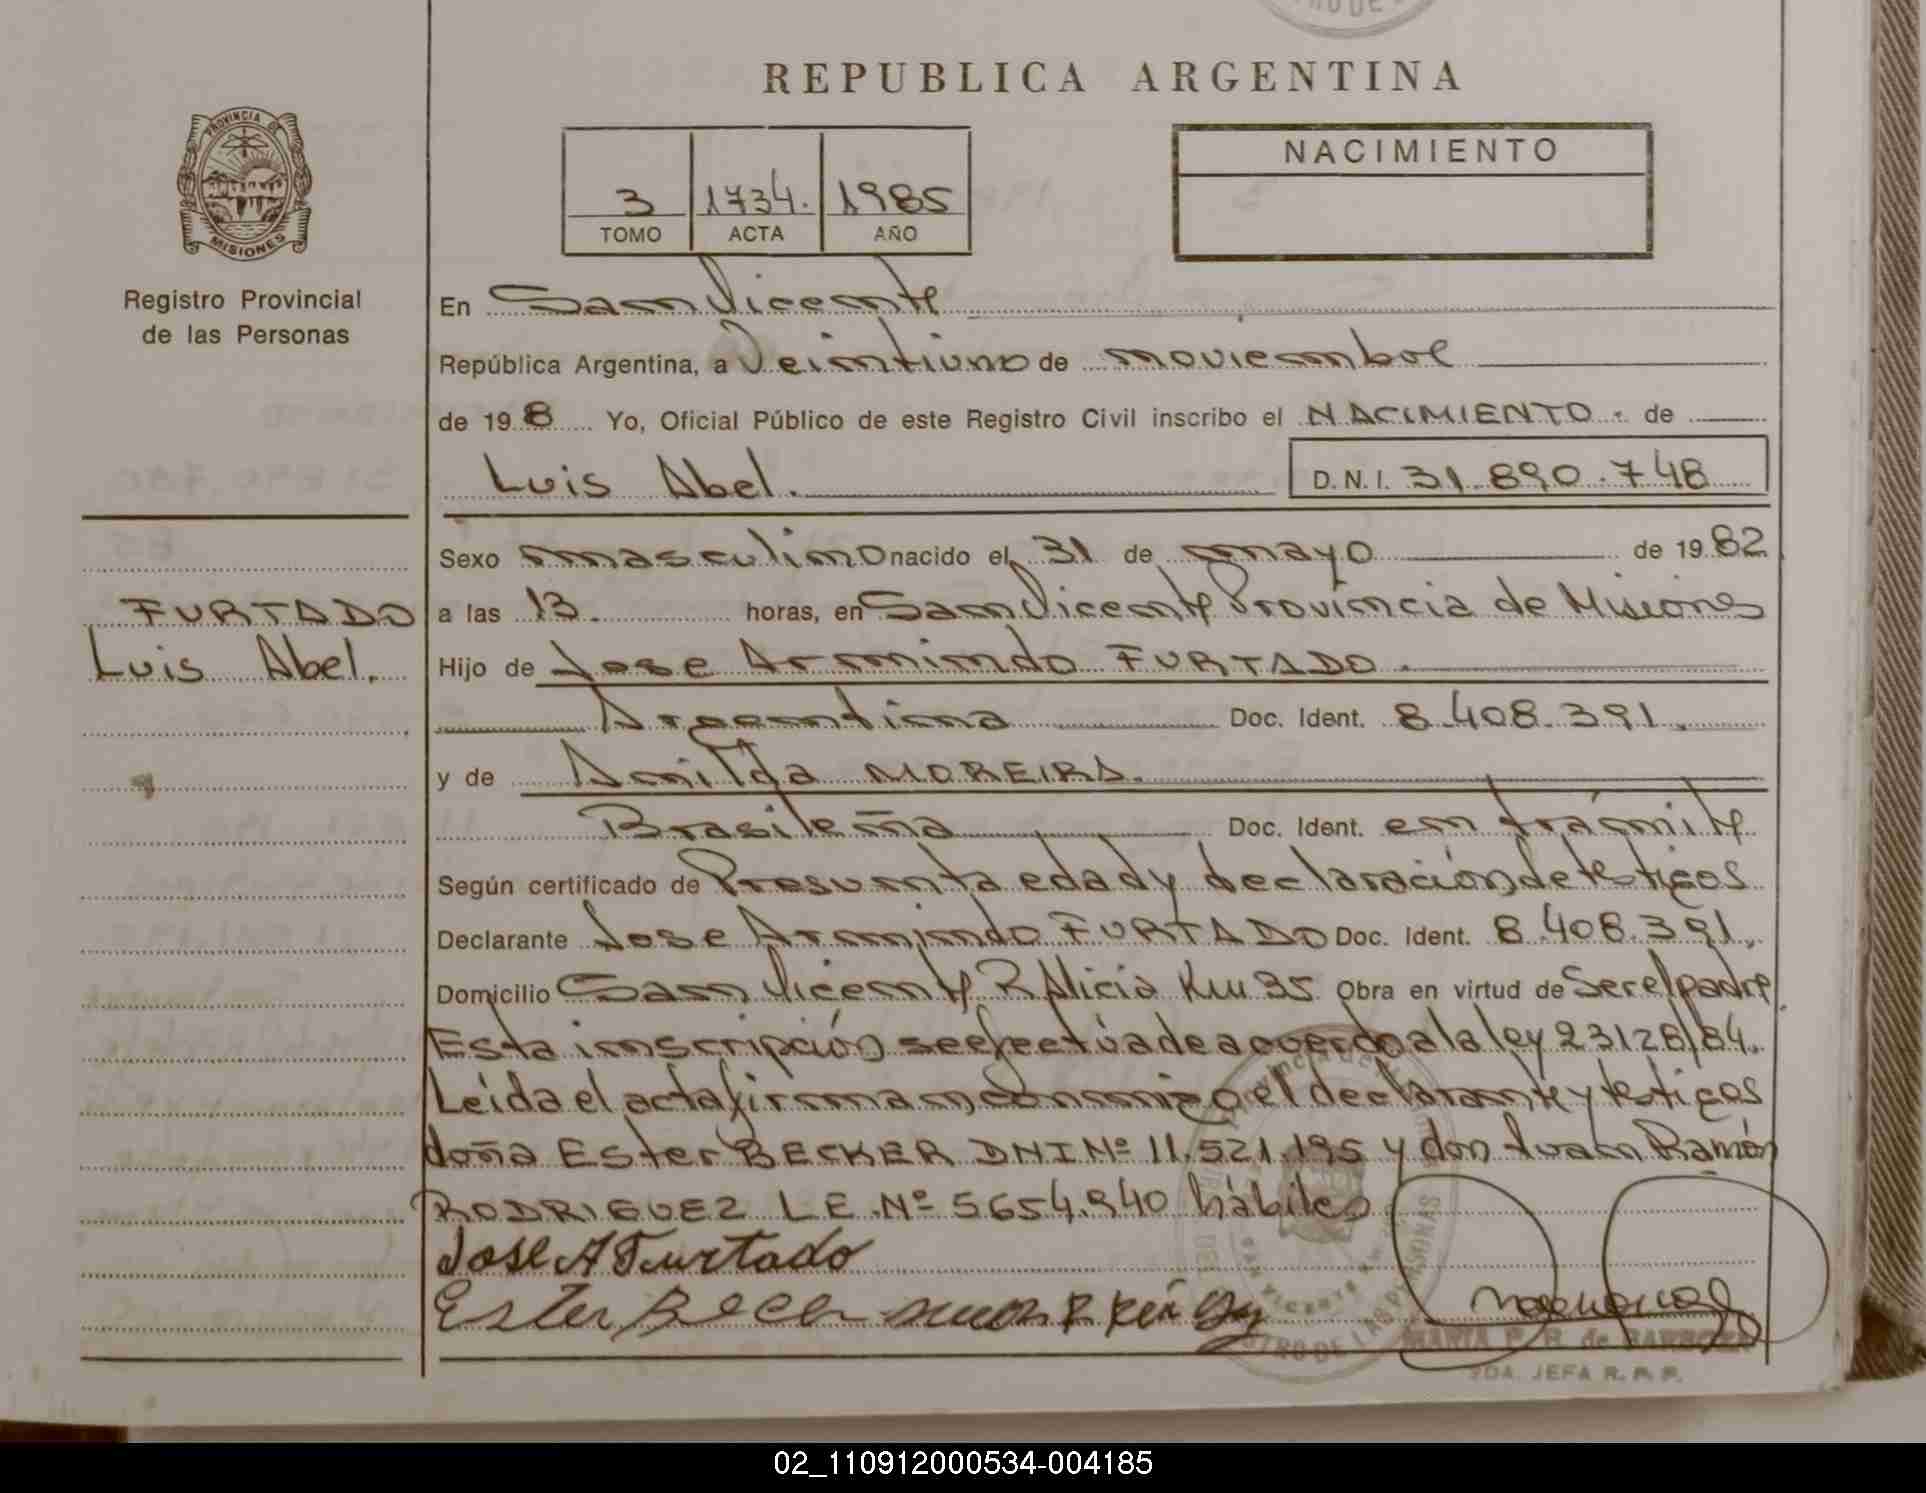 REPUBLICA ARGENTINA
PROVINCIA DE
MISIONES
Registro Provincial
de las Personas
3 1734. 1985
TOMO ACTA AÑO
NACIMIENTO
En San Vicente
República Argentina, a Veintiuno de noviembre
de 198 Yo, Oficial Público de este Registro Civil inscribo el NACIMIENTO. de
Luis Abel. D.N.I. 31.890.748
Sexo masculino nacido el 31 de mayo de 1982
FURTADO
Luis Abel.
a las 13. horas, en San Vicente Provincia de Misiones
Hijo de Jose Armindo FURTADO.
Argentina Doc. Ident. 8.408.391.
y de Anilda MOREIRA.
Brasileña Doc. Ident. en trámite
Según certificado de Presunta edad y declaración de testigos
Declarante Jose Armindo FURTADO Doc. Ident. 8.408.391.
Domicilio San Vicente P. Alicia Km 35 Obra en virtud de Ser el padre
Esta inscripción se efectúa de acuerdo a la ley 23128/84.
Leída el acta firman conmigo el declarante y testigos
doña Ester BECKER DNI Nº 11.521.195 y don Juan Ramón
RODRIGUEZ L E. Nº 5654.940 hábiles
Jose A Furtado
Ester Beck
MARIA
2DA. JEFA R. P. P.
02_110912000534-004185